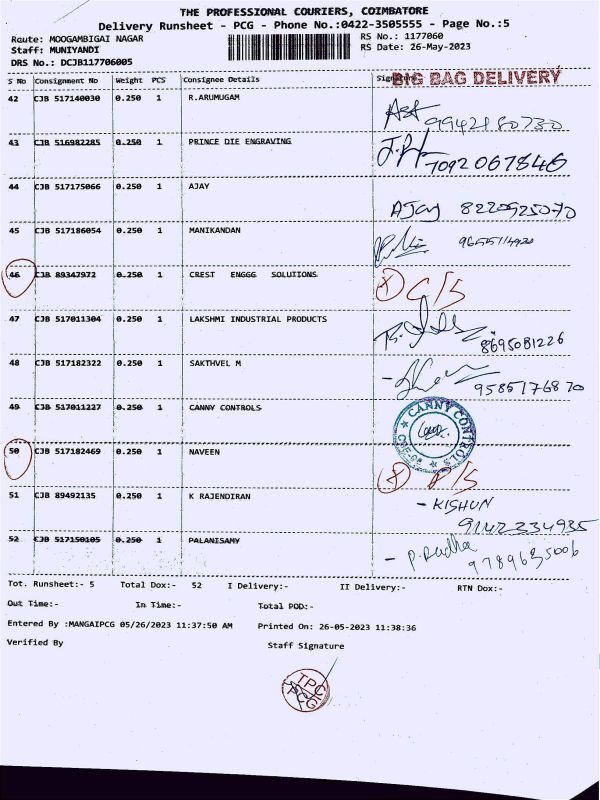 THE PROFESSIONAL COURIERS, COIMBATORE
Delivery Runsheet - PCG - Phone No.:0422-3505555 - Page No.:5
Route: MOOGAMBIGAI NAGAR RS No.: 1177060
Staff: MUNIYANDI RS Date: 26-May-2023
DRS No.: DCJB117706005
S No Consignment No Weight PCS Consignee Details
BIG BAG DELIVERY
42 CJB 517140030 0.250 1 R.ARUMUGAM
9942180730
43 CJB 516982285 0.250 1 PRINCE DIE ENGRAVING
7092067846
44 CJB 517175066 0.250 1 AJAY
AJay 8220925070
45 CJB 517186054 0.250 1 MANIKANDAN
46 CJB 89342972 0.250 1 CREST ENGGG SOLUTIONS
X C/S
47 CJB 517011304 0.250 1 LAKSHMI INDUSTRIAL PRODUCTS
8695081226
48 CJB 517182322 0.250 1 SAKTHVEL M
9585176870
49 CJB 517011227 0.250 1 CANNY CONTROLS
CANNY CONTROLS
50 CJB 517182469 0.250 1 NAVEEN
51 CJB 89492135 0.250 1 K RAJENDIRAN
- KISHUN
9142334935
52 CJB 517150105 0.250 1 PALANISAMY
- P.Radha
9789635006
Tot. Runsheet:- 5 Total Dox:- 52 I Delivery:- II Delivery:- RTN Dox:-
Out Time:- In Time:- Total POD:-
Entered By :MANGAIPCG 05/26/2023 11:37:50 AM Printed On: 26-05-2023 11:38:36
Verified By Staff Signature
TPC
PCG